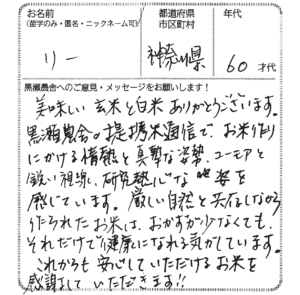 お名前
(苗字のみ・匿名・ニックネーム可)
都道府県
市区町村
年代
リー
神奈川県
60才代
黒瀬農舎へのご意見・メッセージをお願いします!
美味しい玄米と白米ありがとうございます。
黒瀬農舎の提携米通信で、お米作り
にかける情熱と真摯な姿勢、ユーモアと
鋭い視線、研究熱心な姿を
感じています。厳しい自然と共存しながら
作られたお米は、おかずが少なくても、
それだけで健康になれる気がしています。
これからも安心していただけるお米を
感謝していただきます!!